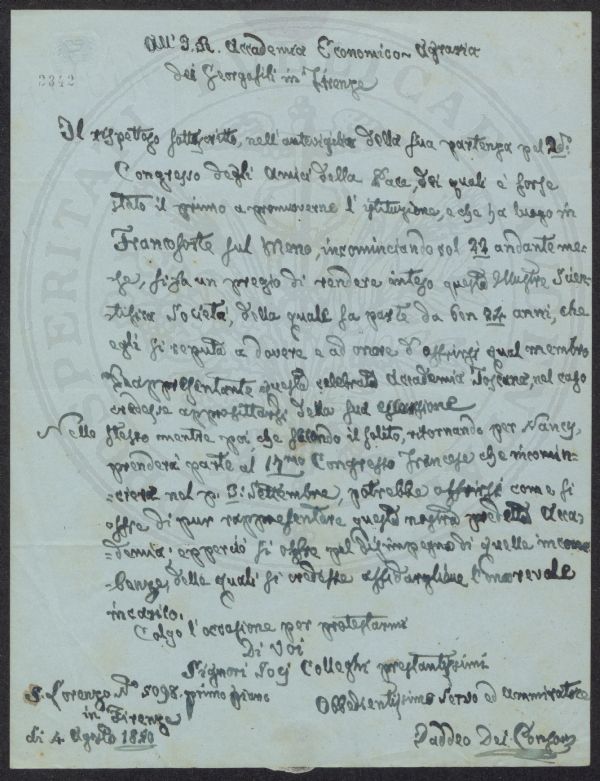 All' I. R. Accademia Economico-Agraria
dei Georgofili in Firenze
2342
Il rispettoso sottoscritto, nell'antevigilia della sua partenza pel 2do
Congresso degli Amici della Pace, dei quali è forse
stato il primo a promuoverne l'istituzione, e che ha luogo in
Francoforte sul Meno, incominciando sol 22 andante me-
se, si fa un pregio di rendere inteso questa Illustre Scien-
tifica Società, della quale fa parte da ben anni, che
egli si reputa a dovere e ad onore d'offrirsi qual membro
Rappresentante questa celebrata Accademia Toscana, nel caso
credesse approfittarsi della sua
Nello stesso mentre poi che secondo il solito, ritornando per Nancy,
prenderà parte al 17mo Congresso Francese che incomin-
cierà nel p. 3: Settembre, potrebbe offrirsi come si
offre di pur rappresentare questa nostra predetta Acca-
=demia: epperciò si offre pel disimpegno di quelle incom-
benze, delle quali si credesse affidargliene l'onorevole
incarico.
Colgo l'occasione per protestarmi
Di Voi
Signori Socj Colleghi prestantissimi
S. Lorenzo No 5098. primo piano
Obbedientissimo Servo ed Ammiratore
in Firenze
di 4 Agosto 1850
Taddeo Dei Consoni